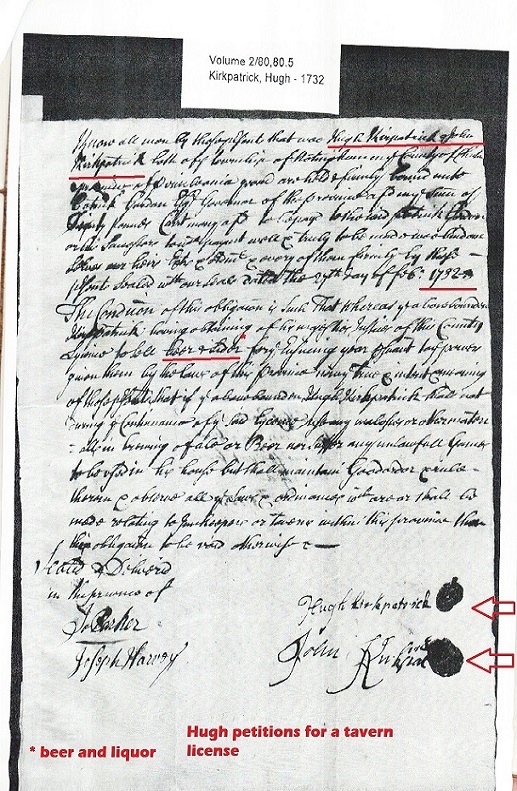 Volume 2/80,80.5
Kirkpatrick, Hugh - 1732
Know all men by these psent that wee Hugh Kirkpatrick & John
Kirkpatrick both of ye township of Notingham in ye County of
province of Pensilvania are held & firmly bound unto
Patrick Gordon Governor of the province in ye sum of
pounds Curt money to be paid to the said Patrick Gordon
or to payment well & truly to be made wee bind
our heirs & every of them firmly by these
psent sealed with our seals dated the 27th day of 1732
The Condition of this obligation is Such That whereas ye above bounden
Kirkpatrick having obtaining of his Justices of this County
Lycence to sell beer & sider for ye Ensuing year psuant to ye power
given them by the laws of this province now ye true intent & meaning
of these psent that if ye above bounden Hugh Kirkpatrick shall not
during ye Continuance of ye said lycence use any molasses or other
in brewing of ale or Beer nor suffer any unlawfull Games
to be used in his house but shall maintain Good order & rule
therein & observe all ye laws & ordinances wch are or shall be
made relating to Innkeepers or taverns within this province then
this obligation to be void otherwise &
Sealed & Delivered
in the presence of
Jo Parker
Joseph Harvey
Hugh Kirkpatrick
John Kirkpat
* beer and liquor
Hugh petitions for a tavern
license